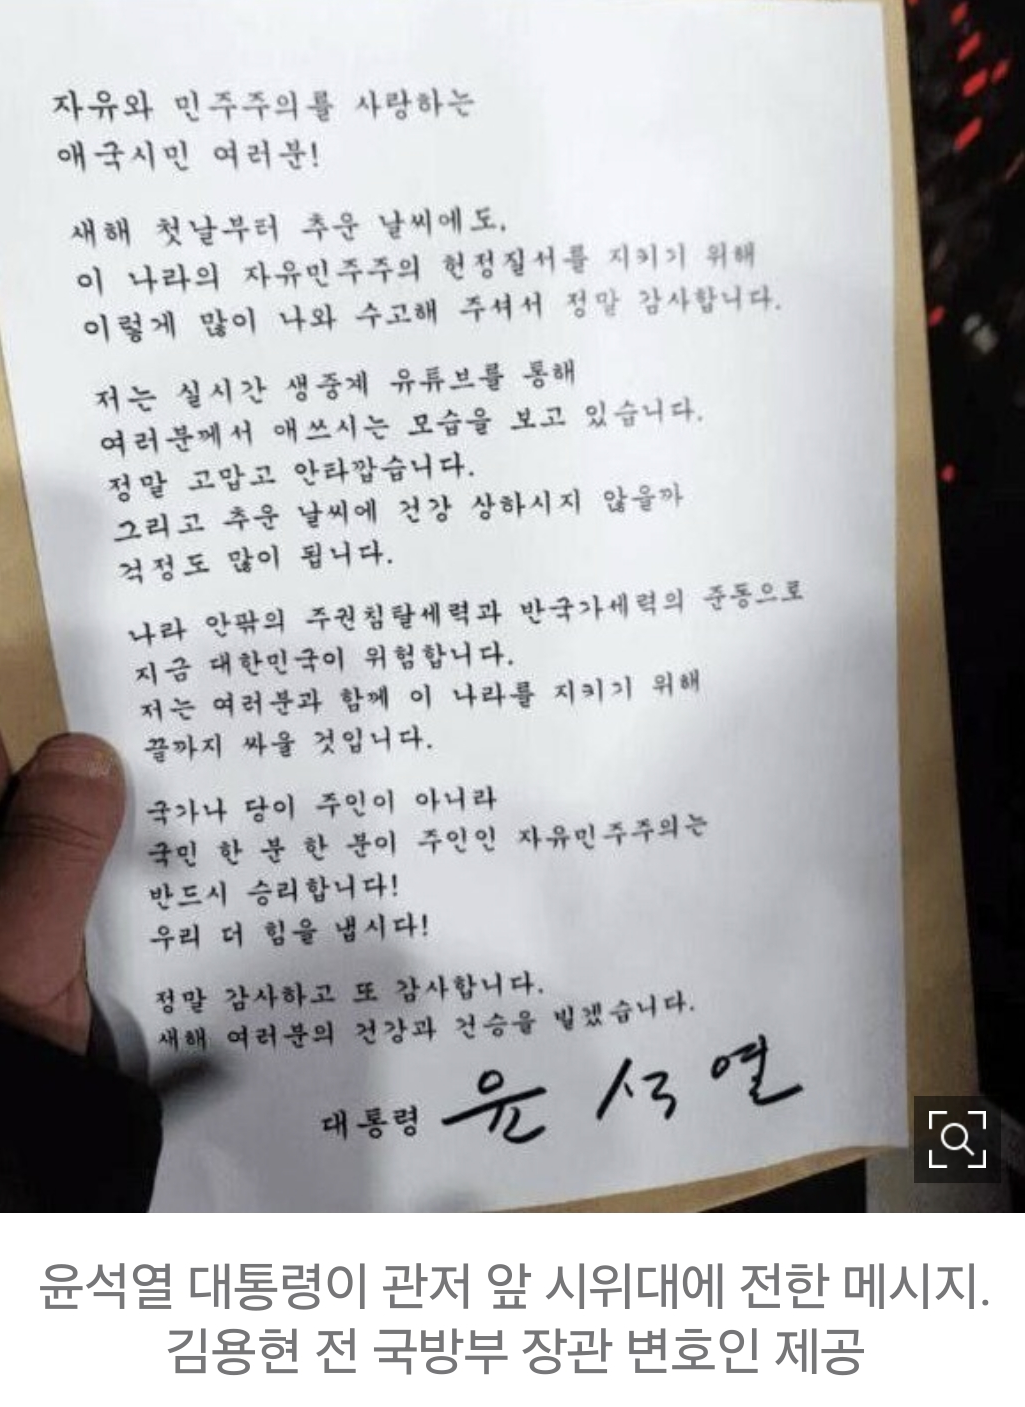 자유와 민주주의를 사랑하는
애국시민 여러분!
새해 첫날부터 추운 날씨에도,
이 나라의 자유민주주의 헌정질서를 지키기 위해
이렇게 많이 나와 수고해 주셔서 정말 감사합니다.
저는 실시간 생중계 유튜브를 통해
여러분께서 애쓰시는 모습을 보고 있습니다.
정말 고맙고 안타깝습니다.
그리고 추운 날씨에 건강 상하시지 않을까
걱정도 많이 됩니다.
나라 안팎의 주권침탈세력과 반국가세력의 준동으로
지금 대한민국이 위험합니다.
저는 여러분과 함께 이 나라를 지키기 위해
끝까지 싸울 것입니다.
국가나 당이 주인이 아니라
국민 한 분 한 분이 주인인 자유민주주의는
반드시 승리합니다!
우리 더 힘을 냅시다!
정말 감사하고 또 감사합니다.
새해 여러분의 건강과 건승을 빌겠습니다.
대통령 윤석열
윤석열 대통령이 관저 앞 시위대에 전한 메시지.
김용현 전 국방부 장관 변호인 제공